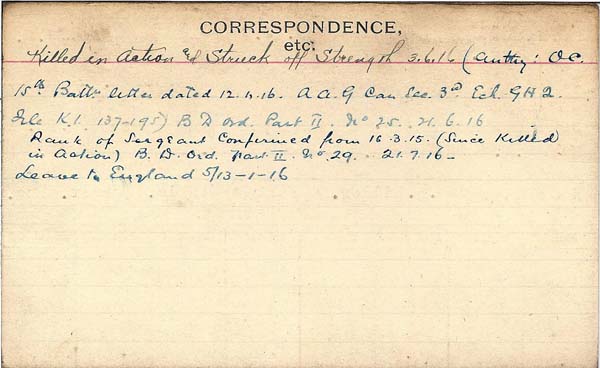 CORRESPONDENCE,
etc.
Killed in Action & Struck off Strength 3.6.16 (Authy: O.C.
15th Battn letter dated 12.6.16. A A.G Can Sec. 3rd Ech. G H Q.
File K.1. 137-195) B D Ord. Part II. No 25. 21.6.16
Rank of Sergeant Confirmed from 16.3.15. (Since Killed
in Action) B. D. Ord. Part II. No. 29. 21.7.16-
Leave to England 5/13-1-16